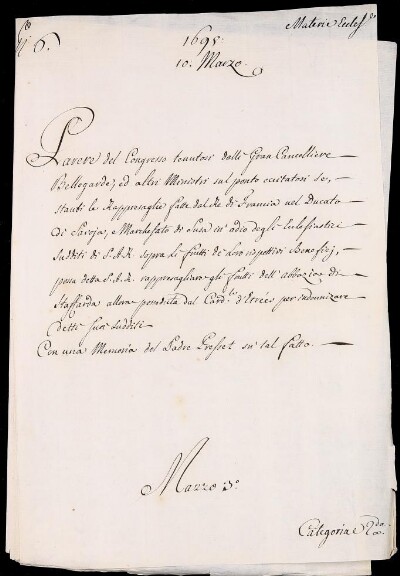 Materie Eccles.e
N.o 6.
1695.
10. Marzo.
Parere del Congresso tenutosi dalli Gran Cancelliere
Bellegarde, ed altri Ministri sul ponto eccitatosi se,
stanti le Rappresaglie fatte dal Re di Francia nel Ducato
di Savoja, e Marchesato di Susa in odio degli Eclesiastici
sudditi di S.A.R. sopra li frutti de' loro rispettivi Beneficj,
possa detta S.A.R. rappresagliare gli frutti dell'abbazia di
Staffarda allora posseduta dal Card.l d'Etrées per indennizare
detti suoi sudditi
Con una Memoria del Padre Presset su tal fatto.
Mazzo 3.o
Categoria 2.da